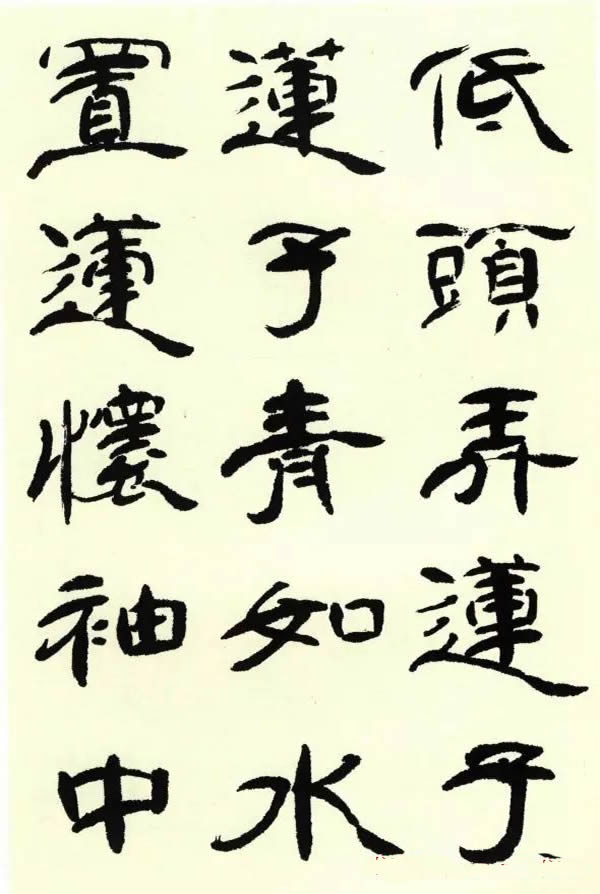 低頭弄蓮子
蓮子青如水
置蓮懷袖中